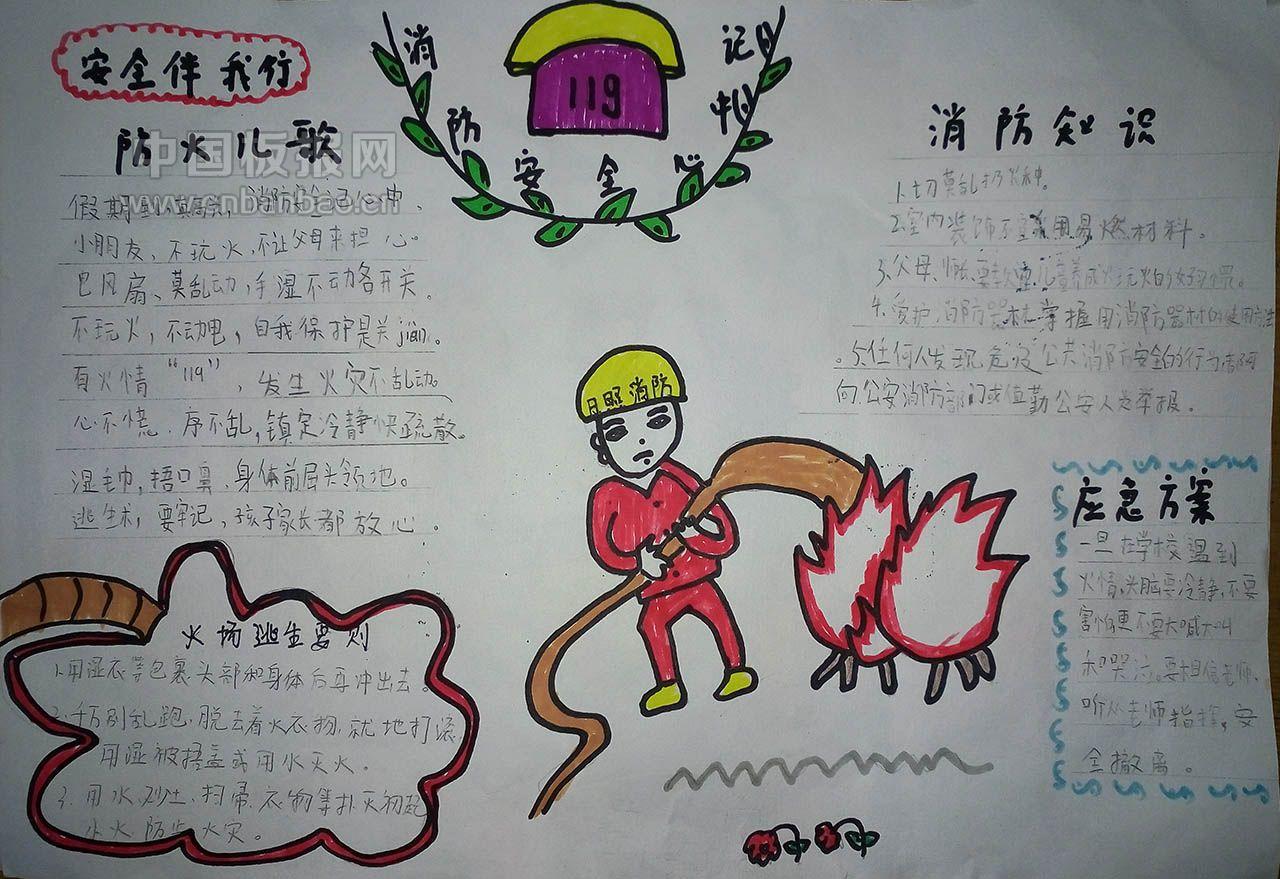 安全伴我行
消防安全心中记
119
防火儿歌
中国板报网
www.cnbanbao.cn
假期
小朋友、不玩火,不让父母来担心。
巴风扇、莫乱动,手湿不动各开关。
不玩火,不动电,自我保护是关jian。
有火情“119”,发生火灾不乱动。
心不慌、序不乱,镇定冷静快疏散。
湿毛巾,捂口鼻、身体前屈头领地。
逃生术,要牢记,孩子家长都放心。
消防知识
1.切莫乱扔火种。
2.室内装饰不宜采用易燃材料。
3、父母、师长、要教育儿童养成火玩火的好习惯。
4.爱护消防器材,掌握用消防器材的使用方法
。5.任何人发现危及公共消防安全的行为,都可
向公安消防部门或值勤公安人员举报。
日照消防
应急方案
一旦在学校遇到
火情,头脑要冷静,不要
害怕更不要大喊大叫
和哭泣。要相信老师、
听从老师指挥,安
全撤离。
火场逃生要则
1.用湿衣等包裹头部和身体后再冲出去。
2.千万别乱跑,脱去着火衣物,就地打滚
用湿被捂盖或用水灭火。
3.用水、砂土、扫帚、衣物等扑灭初起
小火防止火灾。